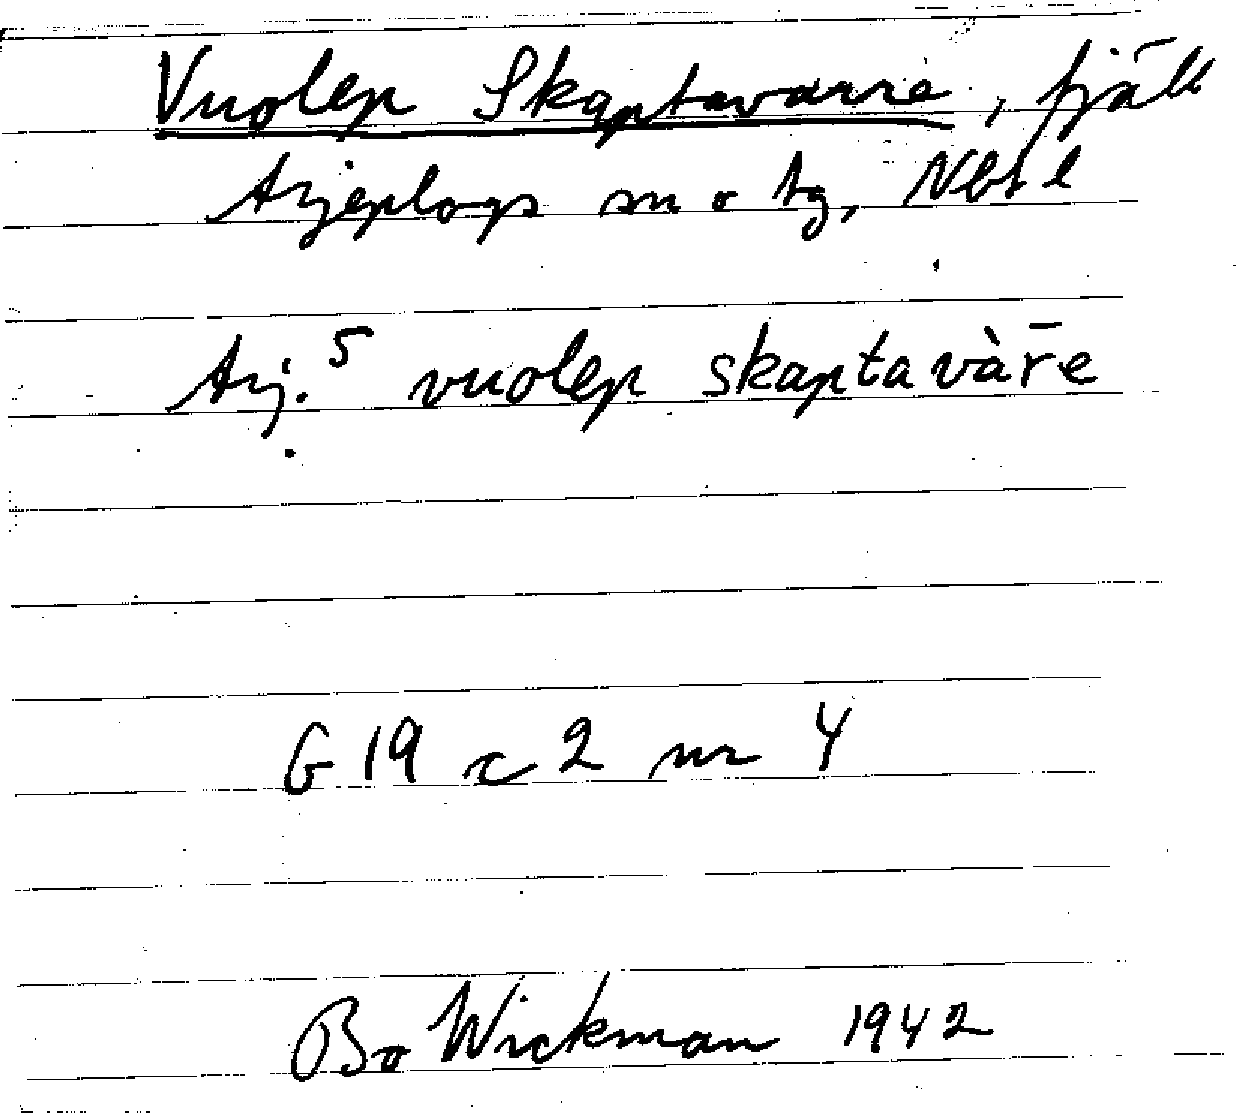 Vuolep Skaptavarre, fjäll
Arjeplogs sn o tg, Nbt l
Arj.⁵ vuolep skaptavàr̄e
G 19 c 2 nr 4
Bo Wickman 1942